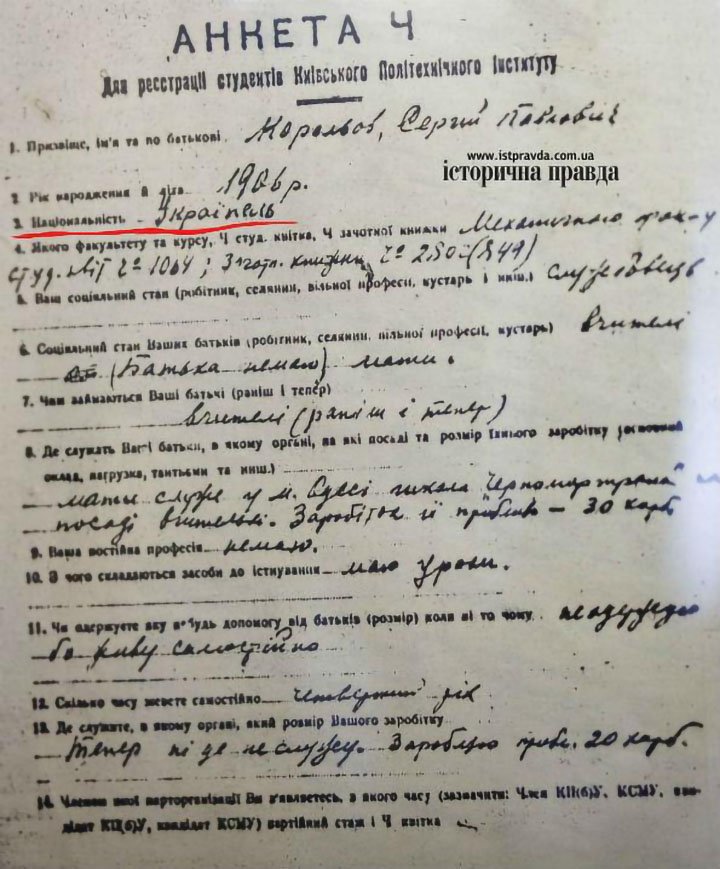 АНКЕТА Ч
Для реєстрації студентів Київського Політехнічного Інституту
1. Призвіще, ім'я та по батькові Корольов, Сергій Павлович
www.istpravda.com.ua
історична правда
2 Рік народження й діга 1906 р.
3. Національність Українець
4. Якого факультету та курсу, Ч студ. квітка, Ч зачотної книжки Механичного
студ. квіт Ч 1064;
5. Ваш соціяльний стан (робітник, селянин, вільної професії, кустарь і инш.) службовець
6. Соціяльний стан Ваших батьків (робітник, селянин, вільної професії, кустарь) вчителі
(Батька немаю) мати.
7. Чим займаються Ваші батькі (раніш і тепер)
вчителі (раніш і тепер)
8. Де служать Ваші батьки, в якому органі, на які посаді та розмір їхнього заробітку (основной
оклад, нагрузка, тантьєми та инш.)
мати служе у м. Одесі школа на
посаді вчительki. Заробіток її приблизно – 30 карб
9. Ваша постійна професія немаю.
10. З чого складаються засоби до існування маю уроки.
11. Чи одержуєте яку небудь допомогу від батьків (розмір) коли ні то чому неодержую
бо живу самостійно
12. Скільки часу живете самостійно четвертий рік
13. Де служите, в якому органі, який розмір Вашого заробітку
Тепер ні де не служу. Заробляю прибл. 20 карб.
14. Членом якої парторганізації Ви з'являєтесь, з якого часу (зазначити: Член КП(б)У, КСМУ, кан-
дидат КП(б)У, кандидат КСМУ) партійний стаж і Ч квітка